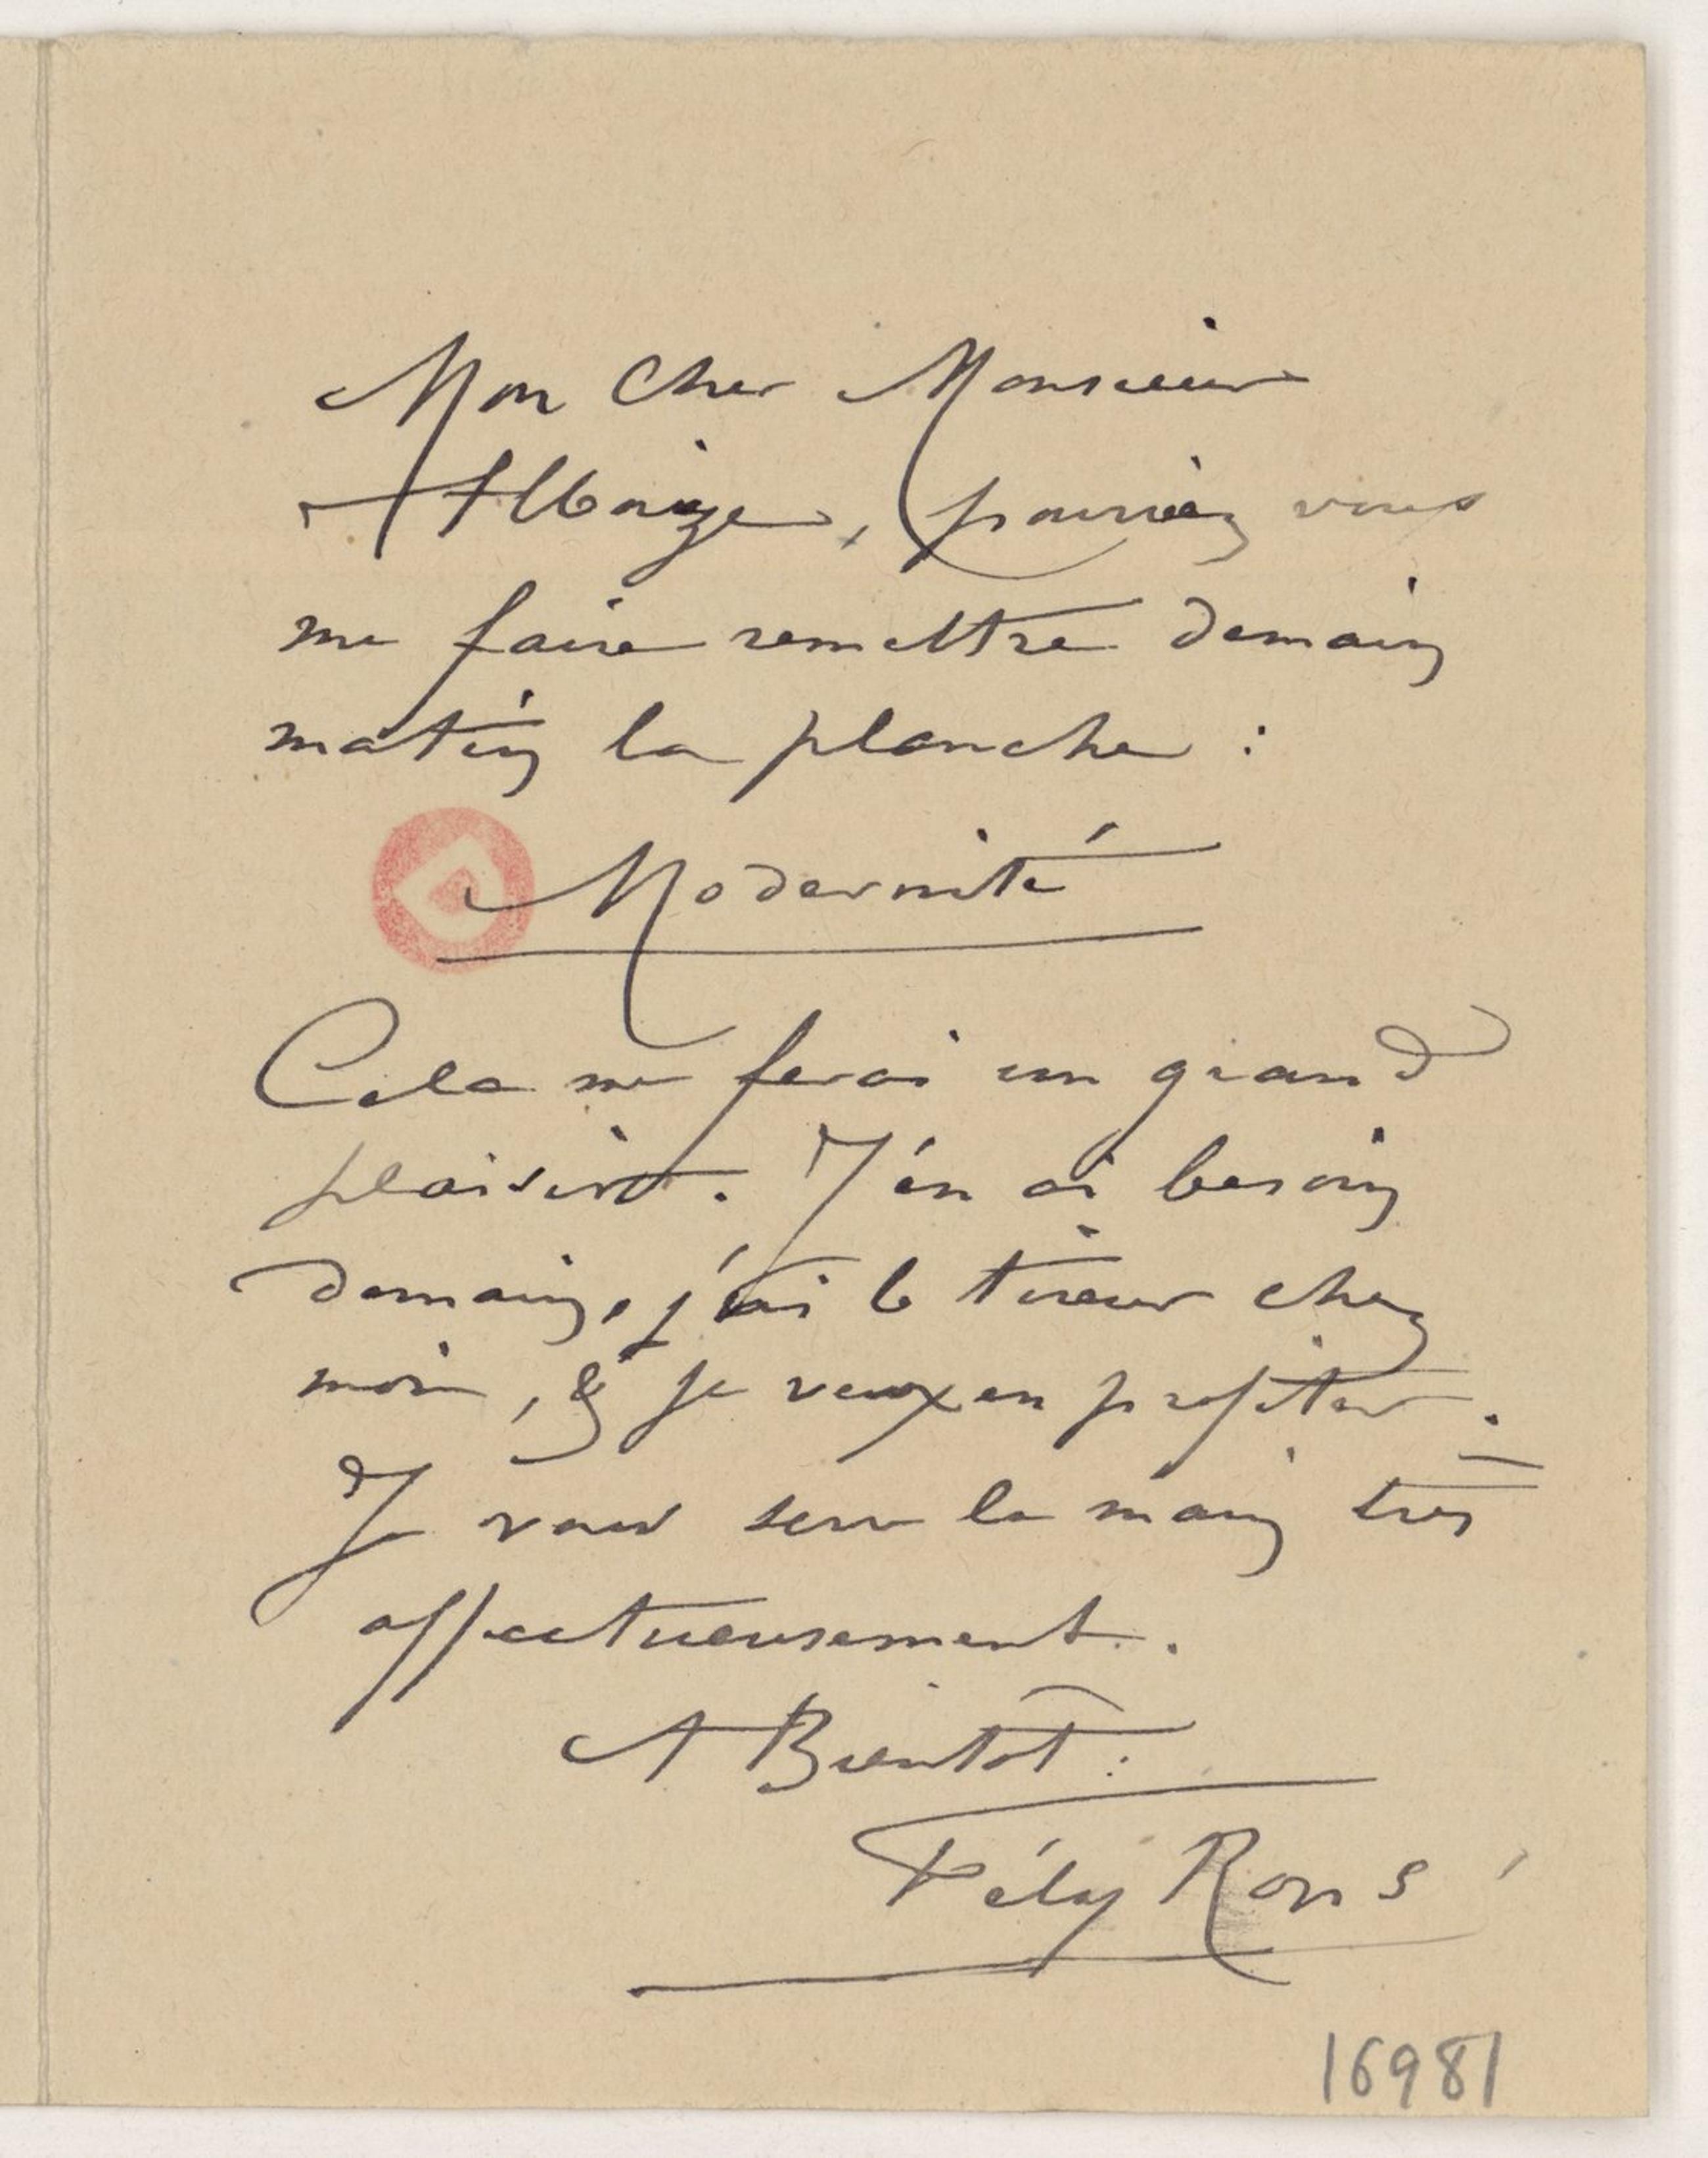 Mon Cher Monsieur
Albaize, pourriez vous
me faire remettre demain
matin la planche :
Modernité
Cela me ferai un grand
plaisir. J'en ai besoin
demain, j'ai le tireur chez
moi, & je veux en profiter.
Je vous serre la main très
affectueusement.
A Bientôt.
Fély Rops
16981